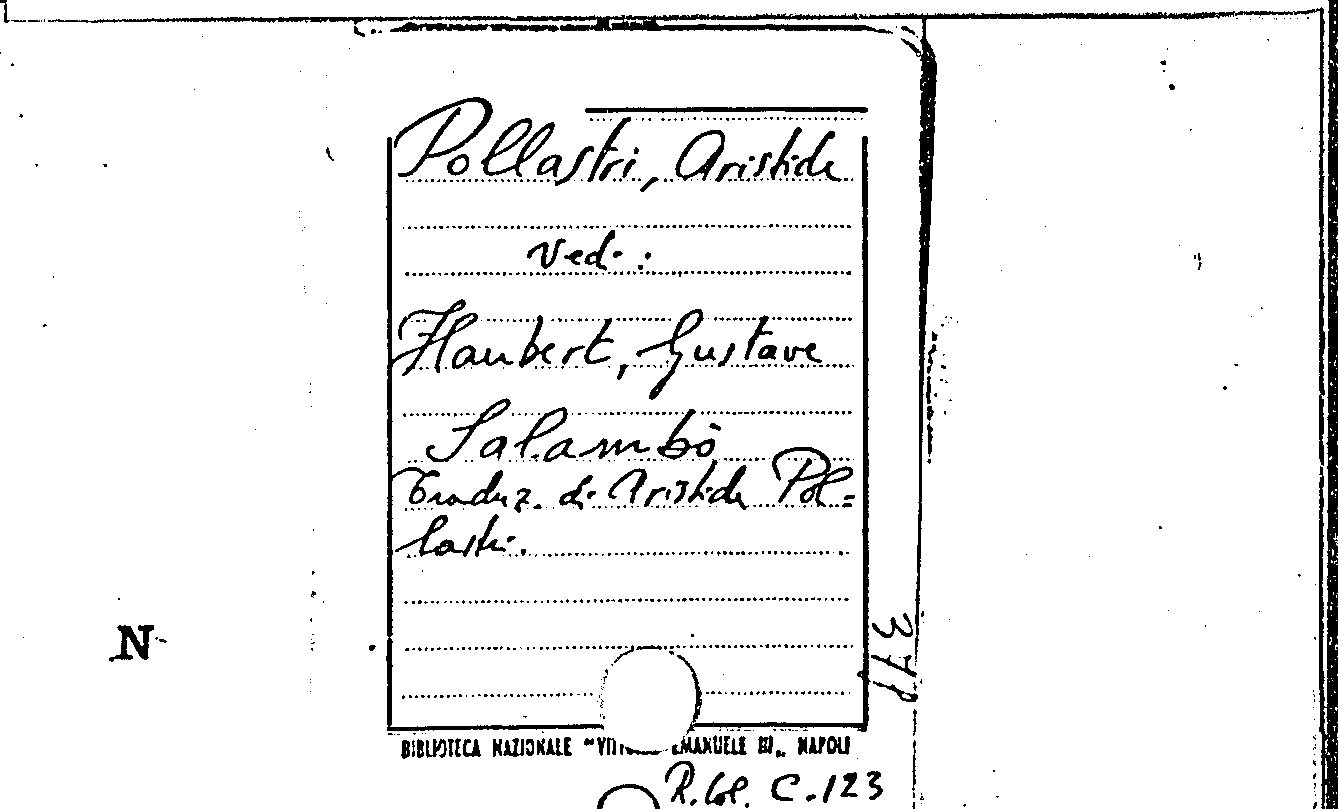 Pollastri, Aristide
Ved. :
Flaubert, Gustave
Salambò
Traduz. di Aristide Pol=
lastri.
N
BIBLIOTECA NAZIONALE "VITT EMANUELE III„ NAPOLI
R. Col. C.123